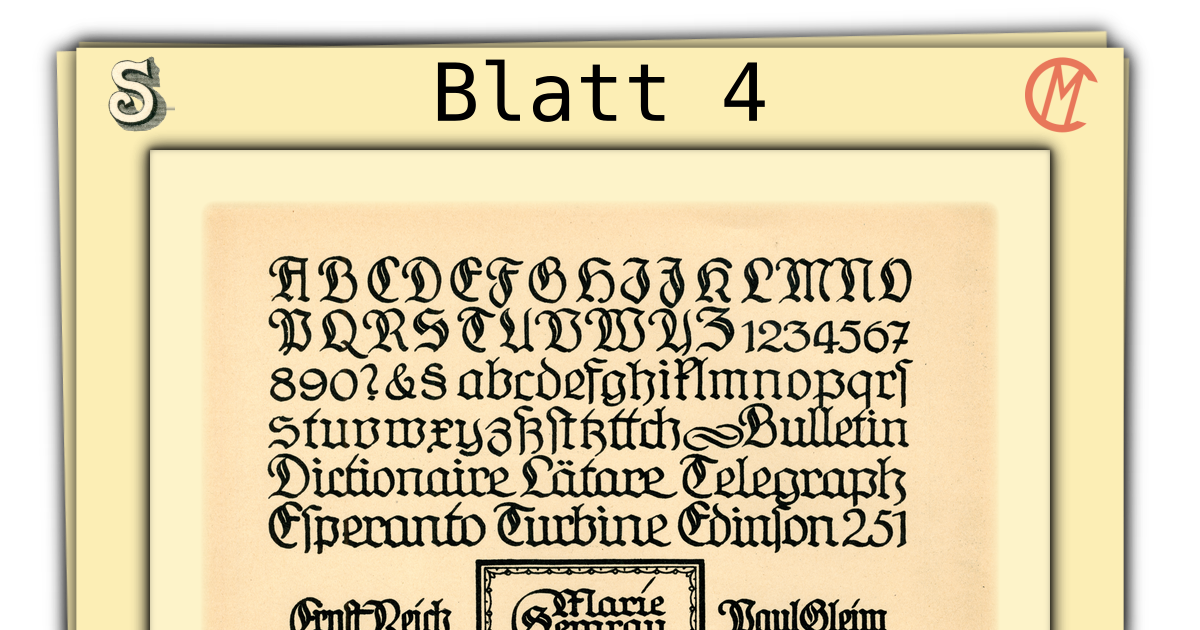 Blatt 4
A B C D E F G H I J K L M N O
P Q R S T U V W Y Z 1234567
890?&§ abcdefghiklmnopqrſ
stuvwxyzßſttzttch Bulletin
Dictionaire Lätare Telegraph
Eſperanto Turbine Edinſon 251
Ernſt Reich
Marie
Paul Gleim